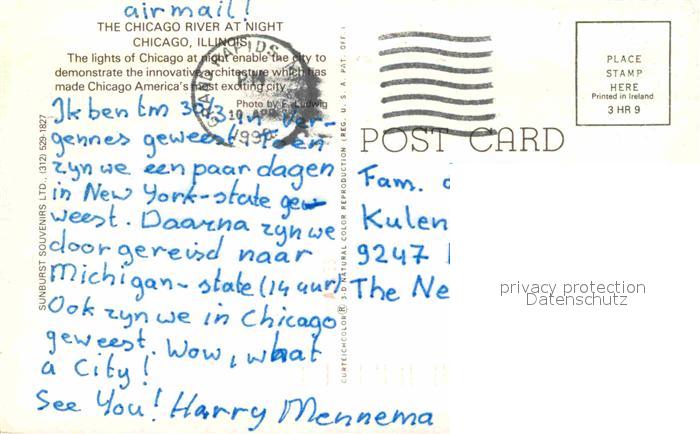 airmail!
THE CHICAGO RIVER AT NIGHT
CHICAGO, ILLINOIS
The lights of Chicago at night enable the city to
demonstrate the innovative architecture which has
made Chicago America's most exciting city.
Photo by E. Ludwig
Ik ben tm 30/3 in Ver-
gennes geweest. Toen
zyn we een paar dagen
in New York-state gew
weest. Daarna zyn we
door gereisd naar
Michigan-state (14 uur)
Ook zyn we in Chicago
geweest. Wow, what
a City!
See You! Harry Mennema
SUNBURST SOUVENIRS LTD., (312) 529-1827
GRAND RAPIDS
PM
10 APR
1990
CURTEICHCOLOR® 3-D NATURAL COLOR REPRODUCTION (REG. U.S.A. PAT. OFF.)
POST CARD
PLACE
STAMP
HERE
Printed in Ireland
3 HR 9
Fam.
Kulen
9247
The Ne
privacy protection
Datenschutz